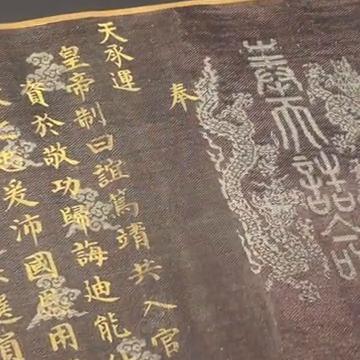 奉天誥命
奉
天承運
皇帝制曰誼篤靖共入官
資於敬功歸誨迪能
忠爰沛國恩用